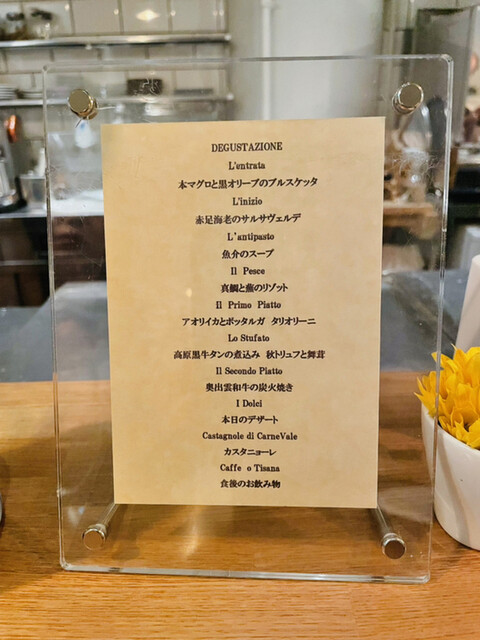 DEGUSTAZIONE
L'entrata
本マグロと黒オリーブのブルスケッタ
L'inizio
赤足海老のサルサヴェルデ
L'antipasto
魚介のスープ
Il Pesce
真鯛と蕪のリゾット
Il Primo Piatto
アオリイカとボッタルガ タリオリーニ
Lo Stufato
高原黒牛タンの煮込み 秋トリュフと舞茸
Il Secondo Piatto
奥出雲和牛の炭火焼き
I Dolci
本日のデザート
Castagnole di CarneVale
カスタニョーレ
Caffe o Tisana
食後のお飲み物